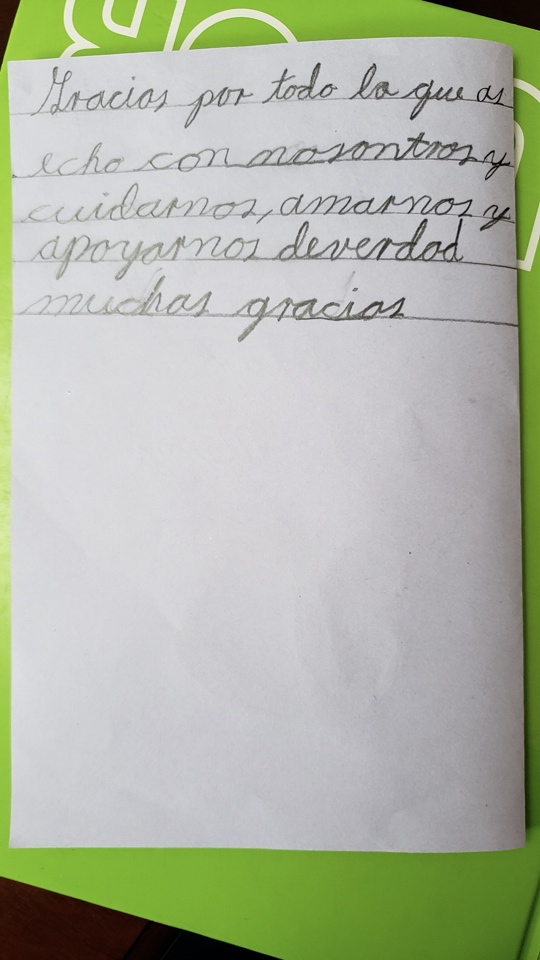 Gracias por todo lo que as
echo con nosontros y
cuidarnos, amarnos y
apoyarnos deverdad
muchas gracias